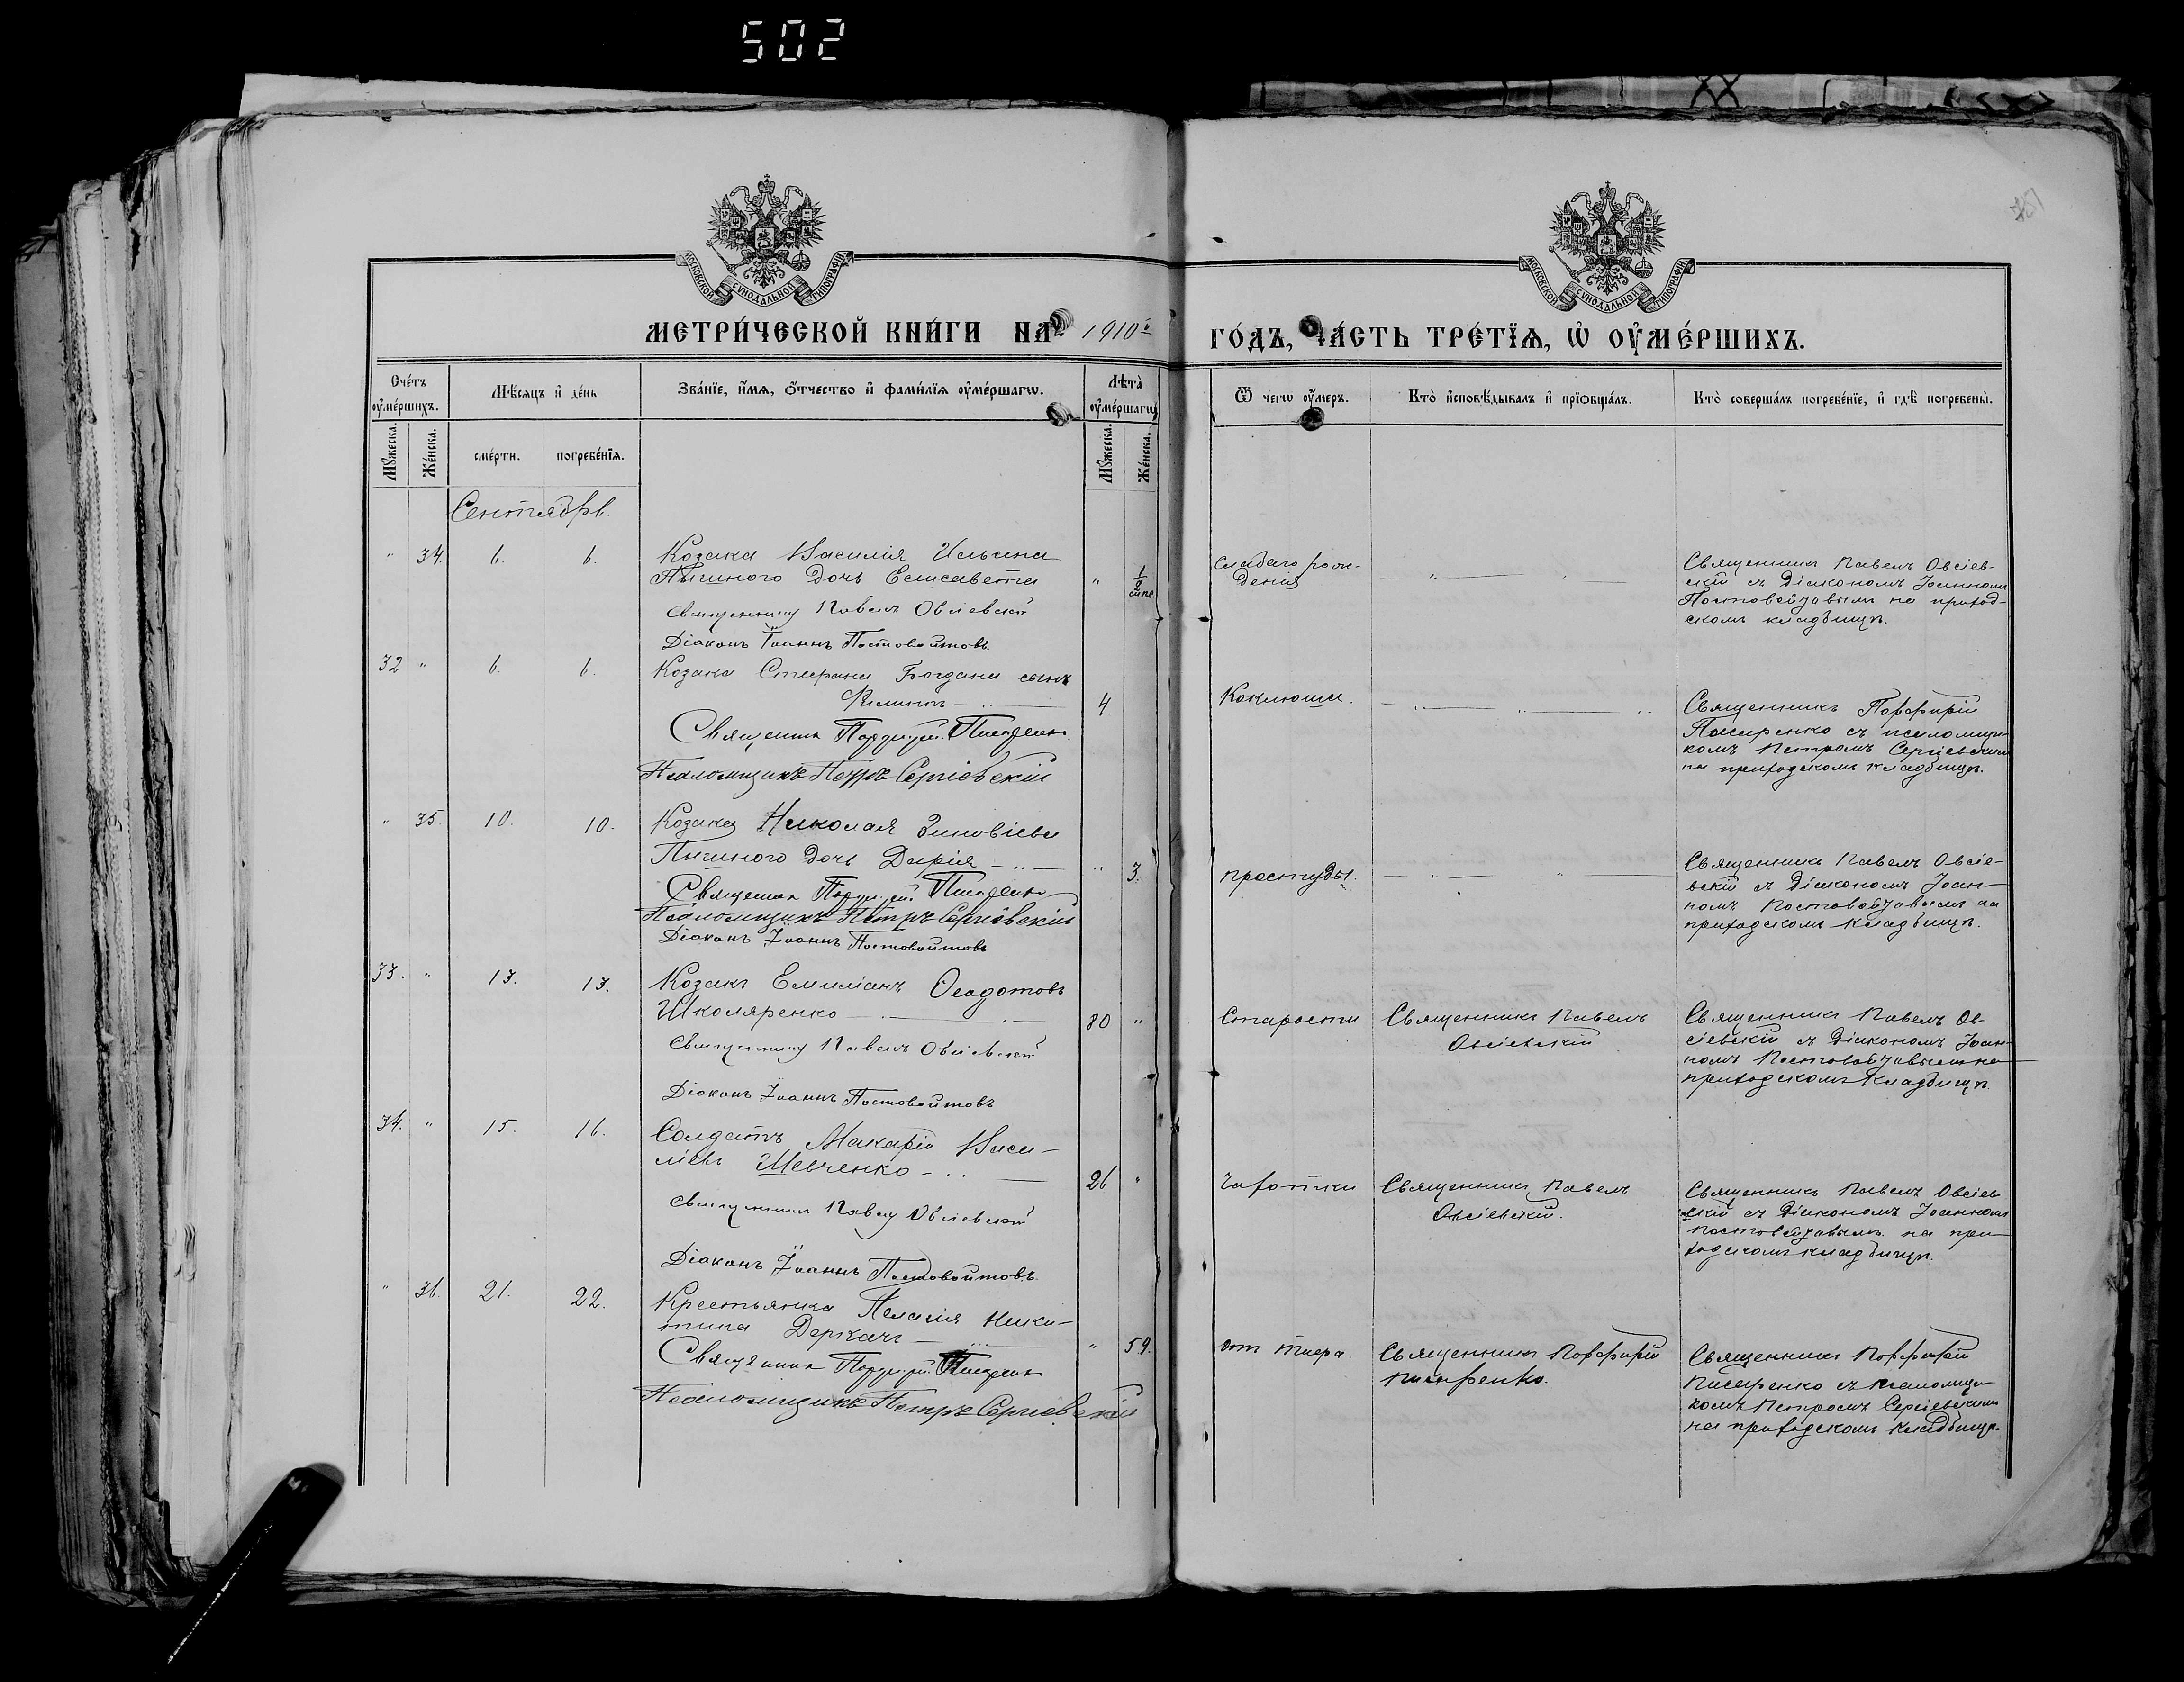 502
МОСКОВСКОЙ СѴНОДАЛЬНОЙ ТИПОГРАФІИ
МОСКОВСКОЙ СѴНОДАЛЬНОЙ ТИПОГРАФІИ
МЕТРИ́ЧЕСКОЙ КНИ́ГИ НА 1910 й
ГО́ДЪ, ЧА́СТЬ ТРЕ́ТЇѦ, Ѡ҆ ОУ҆МЕ́РШИХЪ.
Сче́тъ оу҆ме́ршихъ.
Мѣ́сяцъ и҆ де́нь
Зва́нїе, и҆́мя, ѻ҆́тчество и҆ фами́лїя оу҆ме́ршагѡ.
Лѣта̀ оу҆ме́ршагѡ
Ѿ чегѡ̀ оу҆́меръ.
Кто̀ и҆сповѣ́дывалъ и҆ прїѻбща́лъ.
Кто̀ соверша́лъ погребе́нїе, и҆ гдѣ̀ погребены̀.
Мꙋ́жеска. Же́нска.
сме́рти. погребе́нїя.
Мꙋ́жеска. Же́нска.
Сентябрь.
" 34. 6. 6. Козака Василія Ильина
дочь Елисавета " 1/2
Священникъ Павелъ Овсіевскій
Діаконъ Іоаннъ Постовойтовъ
слабаго рож-
денія
Священникъ Павелъ Овсіев-
скій съ Діакономъ Іоанномъ
Постовойтовымъ на приход-
скомъ кладбищѣ.
32 " 6. 6. Козака Стефана Богдана сынъ
Филиппъ 4.
Священникъ Порфирій Писаренко
Псаломщикъ Петръ Сергіевскій
Коклюша.
Священникъ Порфирій
Писаренко съ псаломщи-
комъ Петромъ Сергіевскимъ
на приходскомъ кладбищѣ.
" 35. 10. 10. Козака Николая Зиновіева
дочь Дарія " 3.
Священникъ Порфирій Писаренко
Псаломщикъ Петръ Сергіевскій
Діаконъ Іоаннъ Постовойтовъ
простуды.
Священникъ Павелъ Овсіе-
вскій съ Діакономъ Іоан-
номъ Постовойтовымъ на
приходскомъ кладбищѣ.
33. " 13. 13. Козакъ Емиліанъ Ѳеодотовъ
Школяренко 80 "
Священникъ Павелъ Овсіевскій
Діаконъ Іоаннъ Постовойтовъ
Старости
Священникъ Павелъ
Овсіевскій
Священникъ Павелъ Ов-
сіевскій съ Діакономъ Іоан-
номъ Постовойтовымъ на
приходскомъ кладбищѣ.
34. " 15. 16. Солдатъ Макарій Васи-
ліевъ Шевченко 26 "
Священникъ Павелъ Овсіевскій
Діаконъ Іоаннъ Постовойтовъ.
Чахотки
Священникъ Павелъ
Овсіевскій.
Священникъ Павелъ Овсіев
скій съ Діакономъ Іоанномъ
Постовойтовымъ на при-
ходскомъ кладбищѣ.
" 36. 21. 22. Крестьянка Пелагія Ники-
тина Деркачъ " 59.
Священникъ Порфирій Писаренко
Псаломщикъ Петръ Сергіевскій
отъ тифа.
Священникъ Порфирій
Писаренко.
Священникъ Порфирій
Писаренко съ псаломщи-
комъ Петромъ Сергіевскимъ
на приходскомъ кладбищѣ.